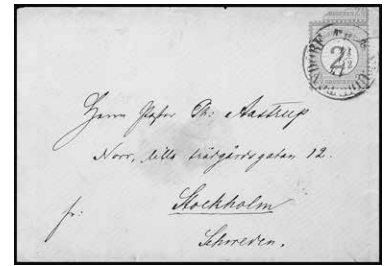 2 1/2
Herrn Pastor Th: Aastrup
Norr, lilla trädgårdsgatan 12.
Stockholm
fr:
Schweden.